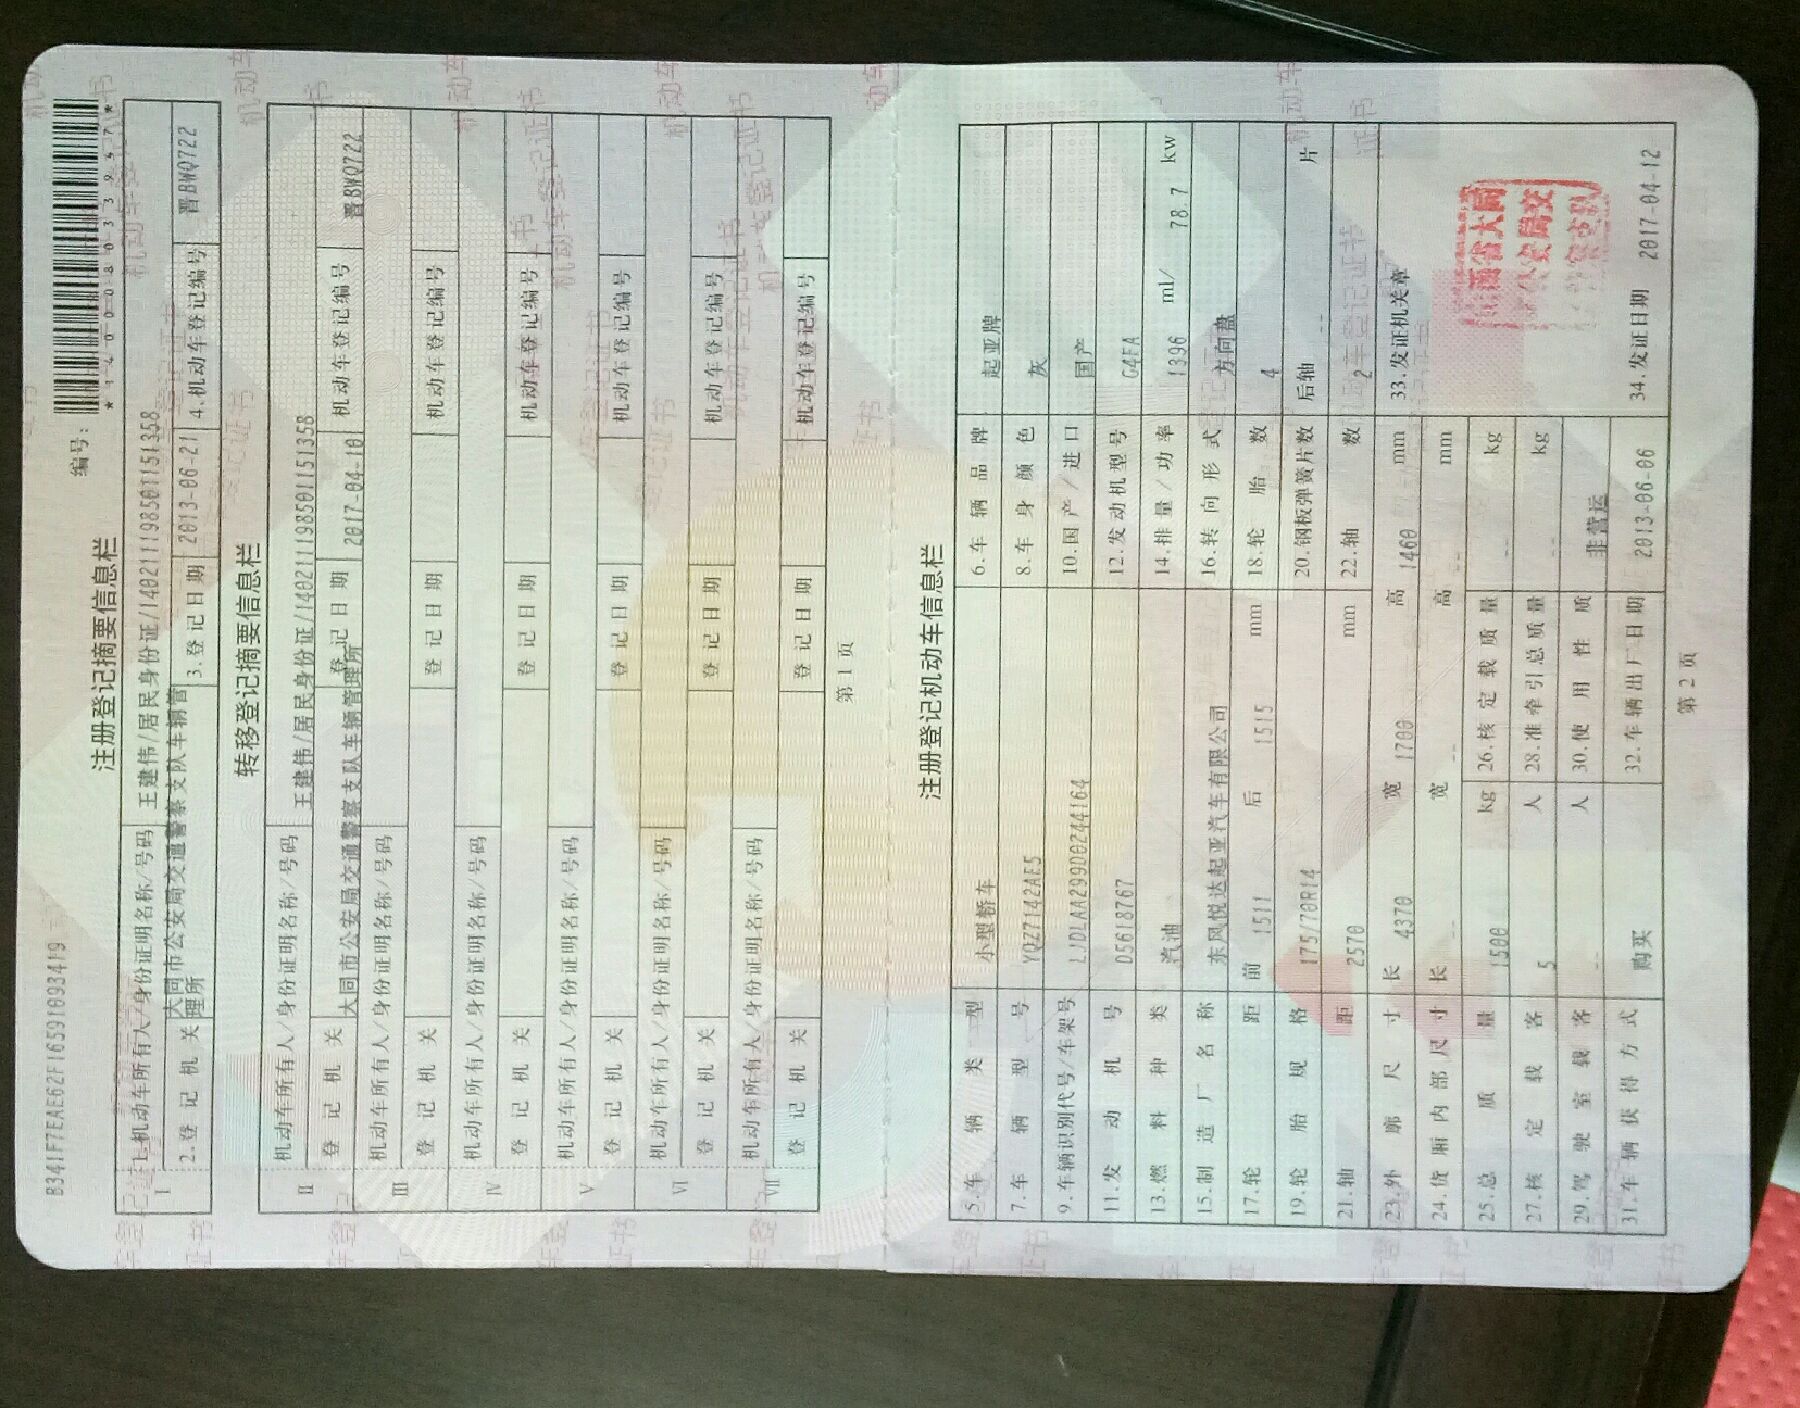 B341F7EAE62F16591093419
编号：
*140008033947*
注册登记摘要信息栏
Ⅰ 1.机动车所有人/身份证明名称/号码 王建伟/居民身份证/140211198501151358
2.登记机关 大同市公安局交通警察支队车辆管理所 3.登记日期 2013-06-21 4.机动车登记编号 晋BWQ722
转移登记摘要信息栏
Ⅱ 机动车所有人/身份证明名称/号码 王建伟/居民身份证/140211198501151358
登记机关 大同市公安局交通警察支队车辆管理所 登记日期 2017-04-10 机动车登记编号 晋BWQ722
Ⅲ 机动车所有人/身份证明名称/号码
登记机关 登记日期 机动车登记编号
Ⅳ 机动车所有人/身份证明名称/号码
登记机关 登记日期 机动车登记编号
Ⅴ 机动车所有人/身份证明名称/号码
登记机关 登记日期 机动车登记编号
Ⅵ 机动车所有人/身份证明名称/号码
登记机关 登记日期 机动车登记编号
Ⅶ 机动车所有人/身份证明名称/号码
登记机关 登记日期 机动车登记编号
第1页
注册登记机动车信息栏
5.车辆类型 小型轿车 6.车辆品牌 起亚牌
7.车辆型号 YQZ7142AE5 8.车身颜色 灰
9.车辆识别代号/车架号 LJDLAA299D0244164 10.国产/进口 国产
11.发动机号 D5618767 12.发动机型号 G4FA
13.燃料种类 汽油 14.排量/功率 1396 ml/ 78.7 kw
15.制造厂名称 东风悦达起亚汽车有限公司 16.转向形式 方向盘
17.轮距 前 1511 后 1515 mm 18.轮胎数 4
19.轮胎规格 175/70R14 20.钢板弹簧片数 后轴 -- 片
21.轴距 2570 mm 22.轴数 2
23.外廓尺寸 长 4370 宽 1700 高 1460 mm 33.发证机关章
24.货厢内部尺寸 长 -- 宽 -- 高 -- mm
25.总质量 1500 kg 26.核定载质量 -- kg
27.核定载客 5 人 28.准牵引总质量 -- kg
29.驾驶室载客 -- 人 30.使用性质 非营运
31.车辆获得方式 购买 32.车辆出厂日期 2013-06-06 34.发证日期 2017-04-12
第2页